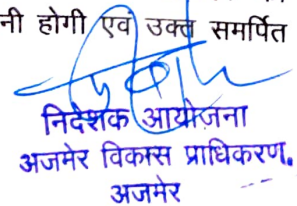 नी होगी एवं उक्त समर्पित
निदेशक आयोजना
अजमेर विकास प्राधिकरण.
अजमेर